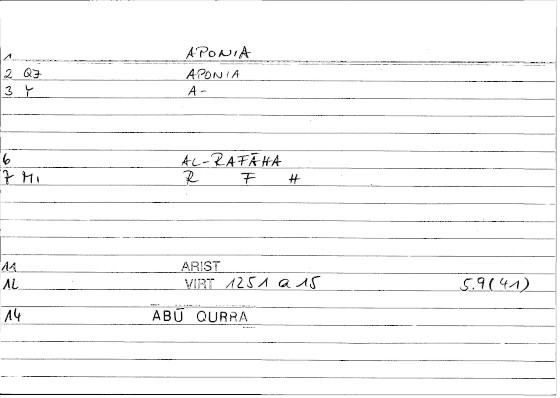 1 APONIA
2 Q7 APONIA
3 Y A-
6 AL-RAFĀHA
7 M1 R F H
11 ARIST
12 VIRT 1251 a 15 5.9(41)
14 ABŪ QURRA